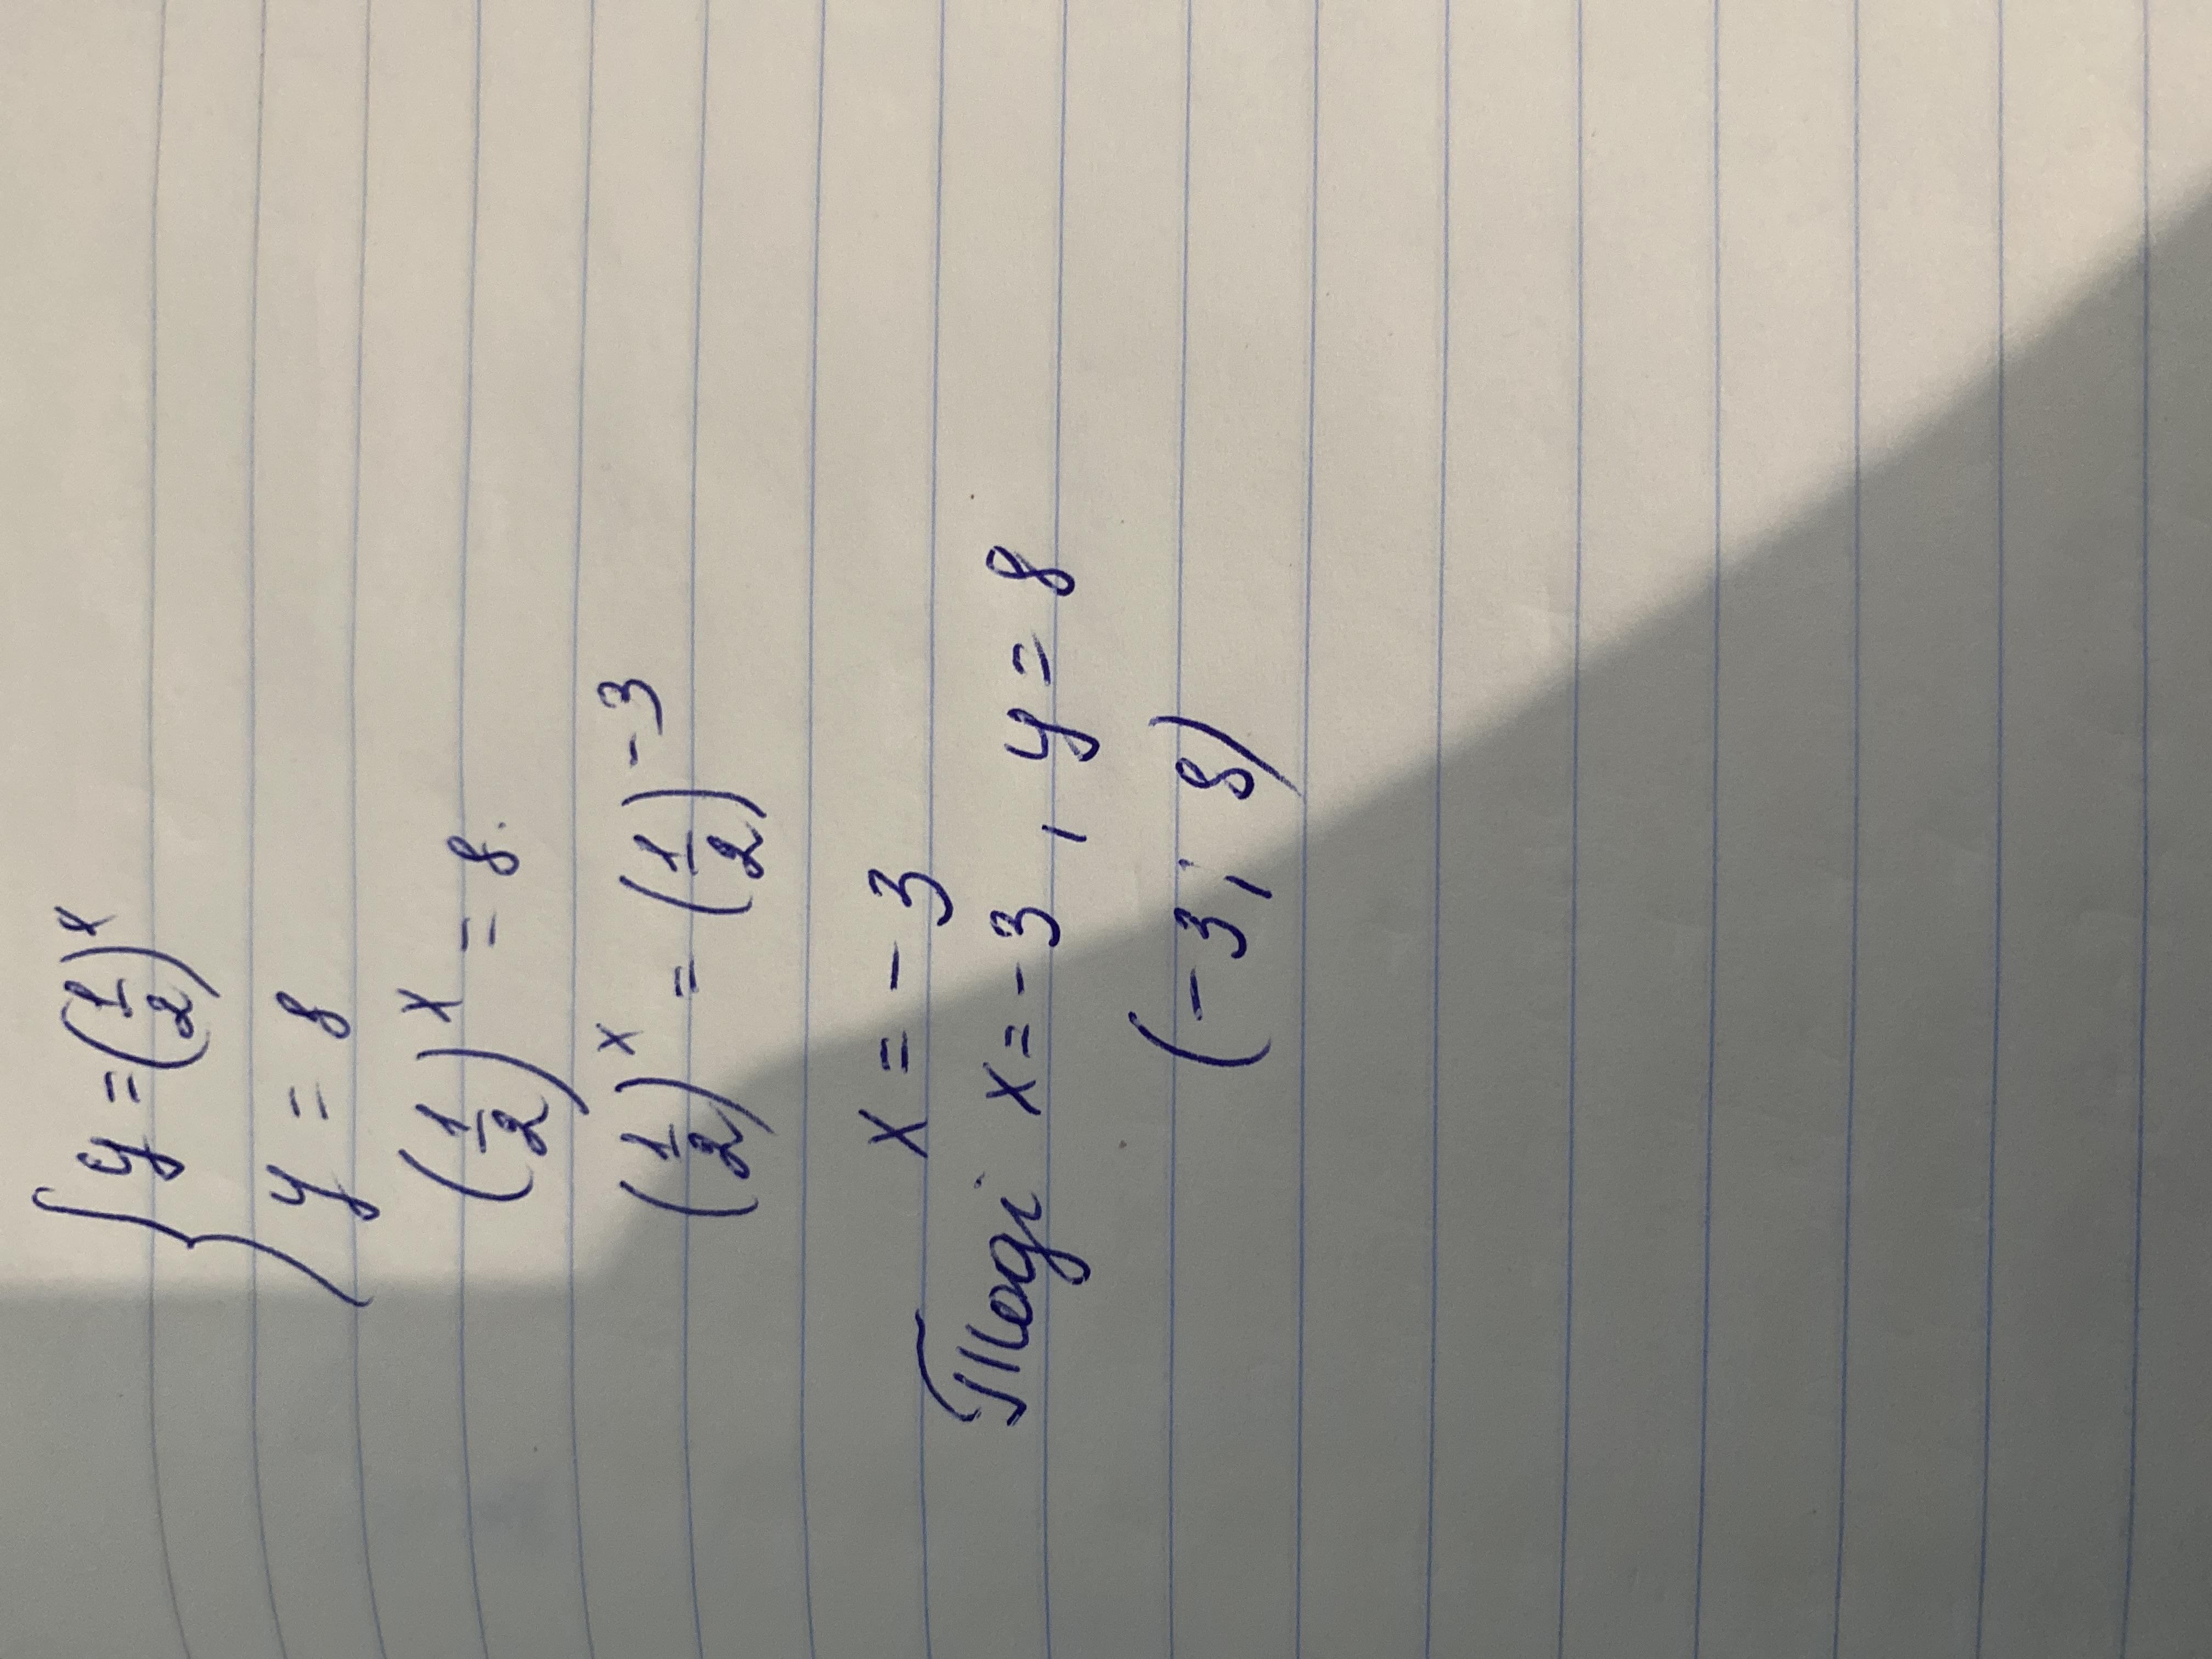 { y = (1/2)^x
y = 8
(1/2)^x = 8.
(1/2)^x = (1/2)^-3
x = -3
Тледі x = -3 , y = 8
(-3; 8)